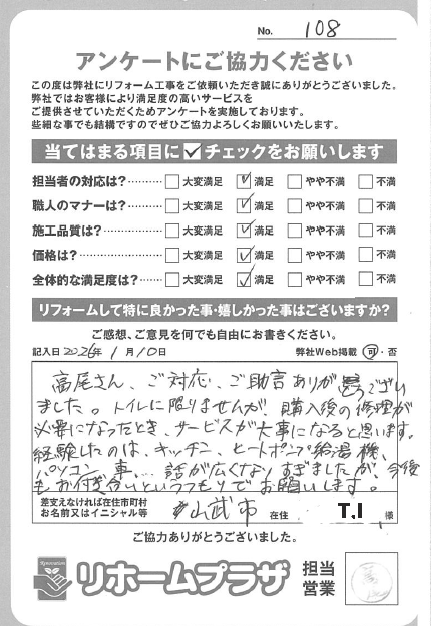 No. 108
アンケートにご協力ください
この度は弊社にリフォーム工事をご依頼いただき誠にありがとうございました。
弊社ではお客様により満足度の高いサービスを
ご提供させていただくためアンケートを実施しております。
些細な事でも結構ですのでぜひご協力よろしくお願いいたします。
当てはまる項目に✓チェックをお願いします
担当者の対応は?………… □大変満足 ☑満足 □やや不満 □不満
職人のマナーは?………… □大変満足 ☑満足 □やや不満 □不満
施工品質は?……………… □大変満足 ☑満足 □やや不満 □不満
価格は?…………………… □大変満足 ☑満足 □やや不満 □不満
全体的な満足度は?……… □大変満足 ☑満足 □やや不満 □不満
リフォームして特に良かった事・嬉しかった事はございますか?
ご感想、ご意見を何でも自由にお書きください。
記入日 2026年 1月 10日 弊社Web掲載 可・否
高尾さん、ご対応、ご助言ありがとうござい
ました。トイレに限りませんが、購入後の修理が
必要になったとき、サービスが大事になると思います。
経験したのは、キッチン、ヒートポンプ給湯機、
パソコン、車…、話が広くなりすぎましたが、今後
もお付き合いというつもりでお願いします。
差支えなければ在住市町村
お名前又はイニシャル等 山武市 在住 T,I 様
ご協力ありがとうございました。
リホームプラザ 担当
営業